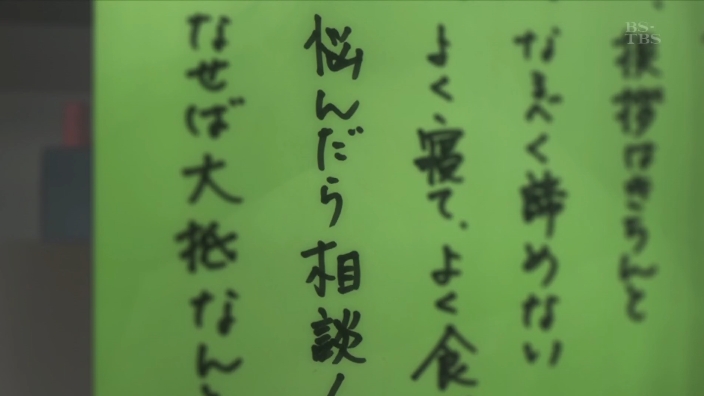 挨拶はきちんと
なるべく諦めない
よく寝て、よく食
悩んだら相談!
なせば大抵なんと
BS-TBS